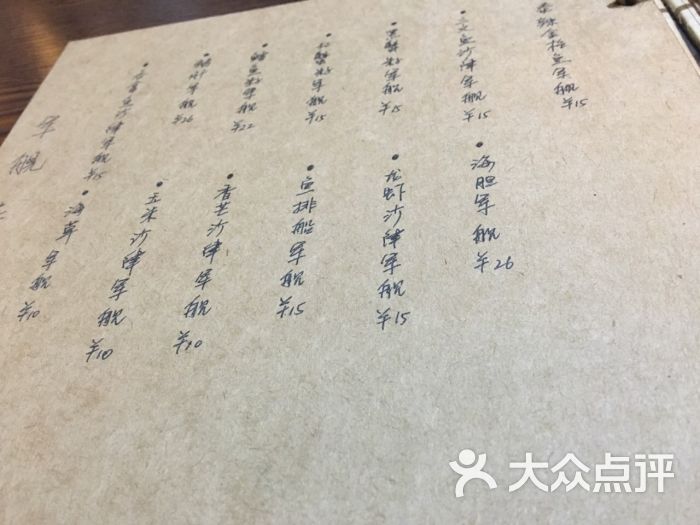 香辣金枪鱼军舰 ¥15
三文鱼沙律军舰 ¥15
黑蟹籽军舰 ¥15
红蟹籽军舰 ¥15
鳗鱼籽军舰 ¥22
军舰 ¥26
鱼沙律军舰 ¥15
军舰
海胆军舰 ¥26
龙虾沙律军舰 ¥15
鱼排船军舰 ¥15
香芒沙律军舰 ¥10
玉米沙律军舰 ¥10
海草军舰 ¥10
大众点评